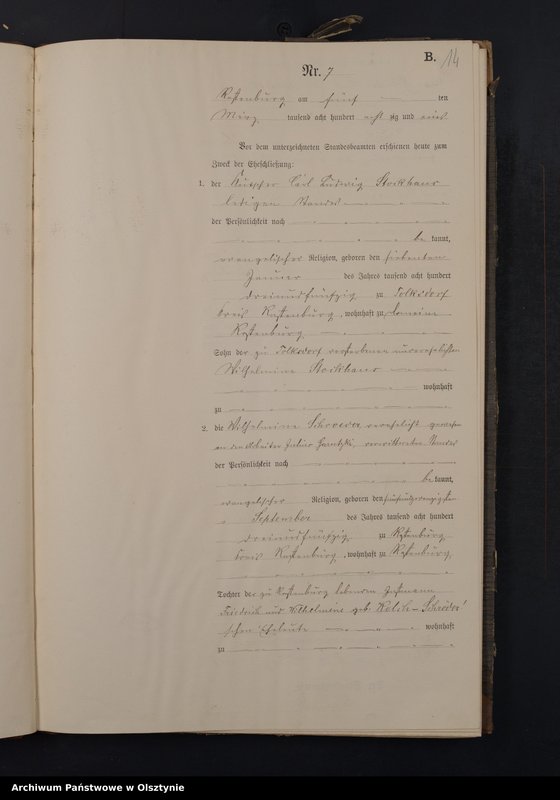 B. 14
Nr. 7
Rastenburg am fünf ten
März tausend acht hundert acht zig und eins
Vor dem unterzeichneten Standesbeamten erschienen heute zum
Zweck der Eheschließung:
1. der Kutscher Carl Ludwig Stockhaus
ledigen Standes
der Persönlichkeit nach
be kannt,
evangelischer Religion, geboren den siebenten
Januar des Jahres tausend acht hundert
dreiundfünfzig zu Tolksdorf
Kreis Rastenburg, wohnhaft zu
Rastenburg
Sohn der zu Tolksdorf verstorbenen unverehelichten
Wilhelmine Stockhaus
wohnhaft
zu
2. die Wilhelmine Schroeder, verehelicht gewesen
an den Arbeiter Julius, verwittweten Standes
der Persönlichkeit nach
be kannt,
evangelischer Religion, geboren den fünfundzwanzigsten
September des Jahres tausend acht hundert
dreiundfünfzig zu Rastenburg
Kreis Rastenburg, wohnhaft zu Rastenburg
Tochter der zu Rastenburg lebenden
Friedrich und Wilhelmine geb. Schroeder'
schen Eheleute wohnhaft
zu
Archiwum Państwowe w Olsztynie